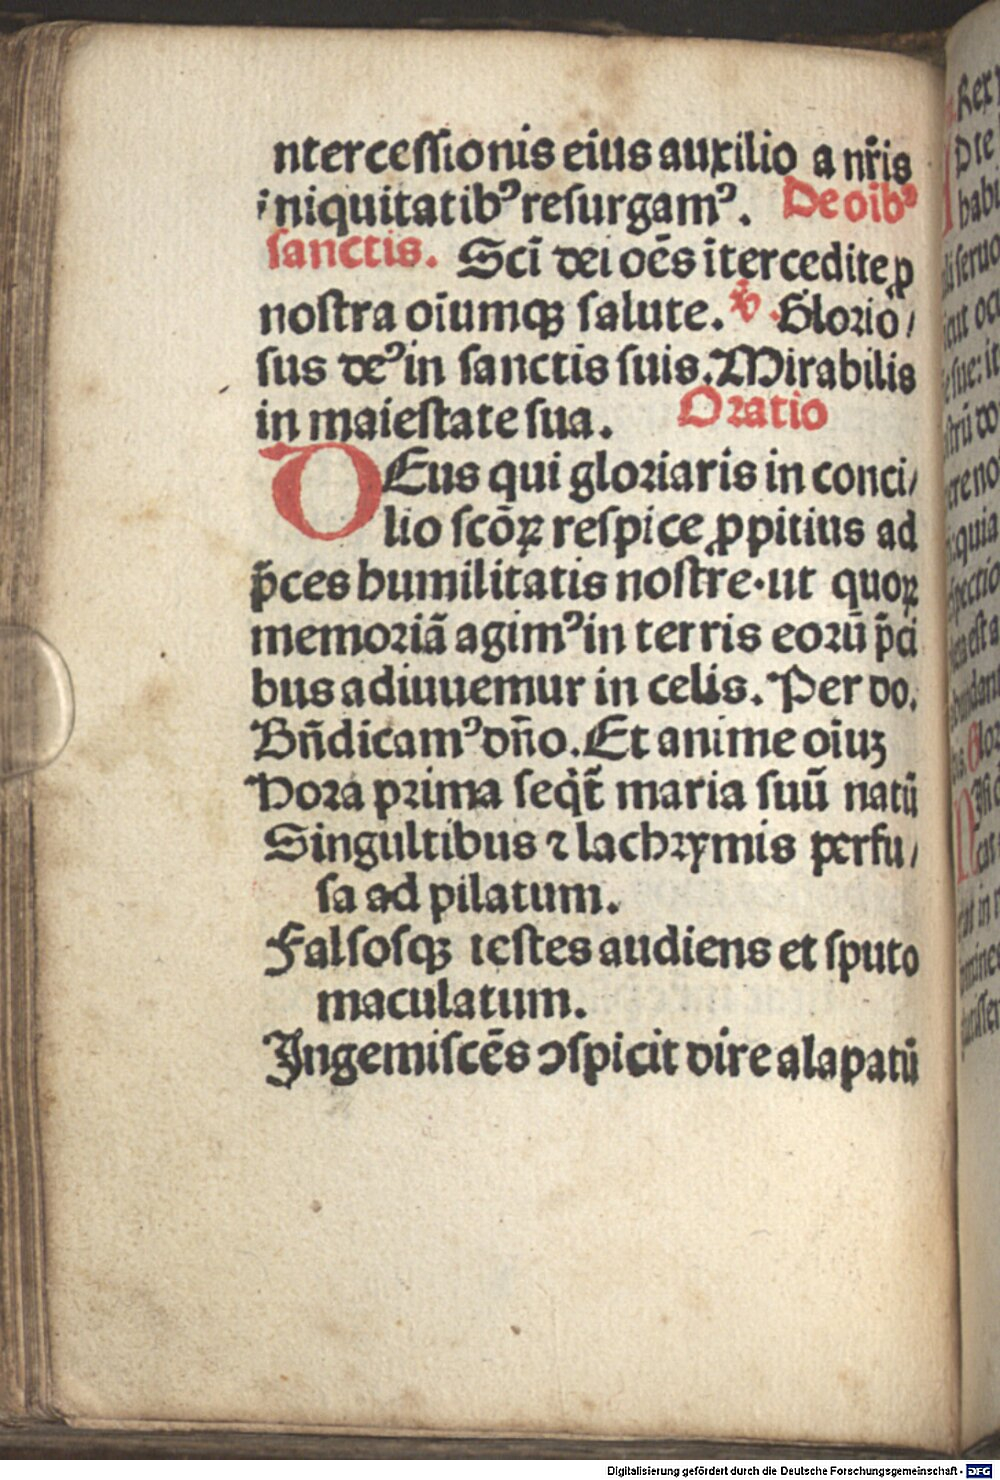 ntercessionis eius auxilio a nr̄is
iniquitatibꝰ resurgamꝰ. De oībꝰ
sanctis. Sci̅ dei oe̅s i̅tercedite ꝓ
nostra oi̅umqꝫ salute. ℣. Glorio/
sus deꝰ in sanctis suis. Mirabilis
in maiestate sua. Oratio
DEus qui gloriaris in conci/
lio sco̅ꝝ respice ꝓpitius ad
p̅ces humilitatis nostre. ut quoꝝ
memoria̅ agimꝰ in terris eoru̅ p̅ci
bus adiuuemur in celis. Per do.
Bn̅dicamꝰ dn̅o. Et anime oiuꝫ
Hora prima seq̇t̅ maria suu̅ natu̅
Singultibus ⁊ lachrymis perfu/
sa ad pilatum.
Falsosqꝫ testes audiens et sputo
maculatum.
Ingemisce̅s ꝯspicit dire alapatu̅
Digitalisierung gefördert durch die Deutsche Forschungsgemeinschaft - DFG